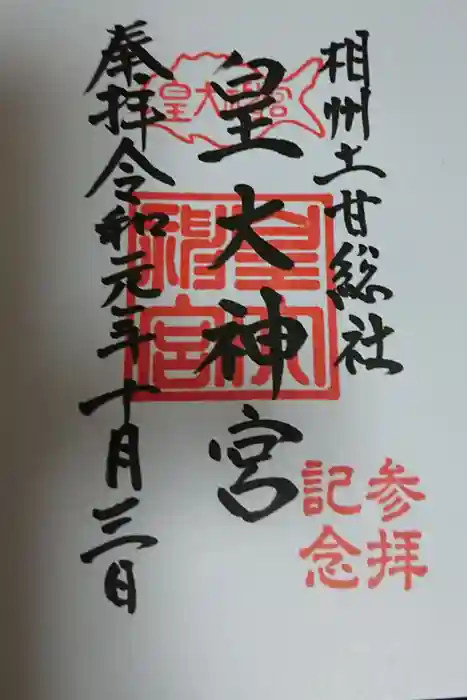 相州土甘総社
皇大神宮
奉拝令和元年十月三日
皇大神宮
皇大神宮
参拝
記念